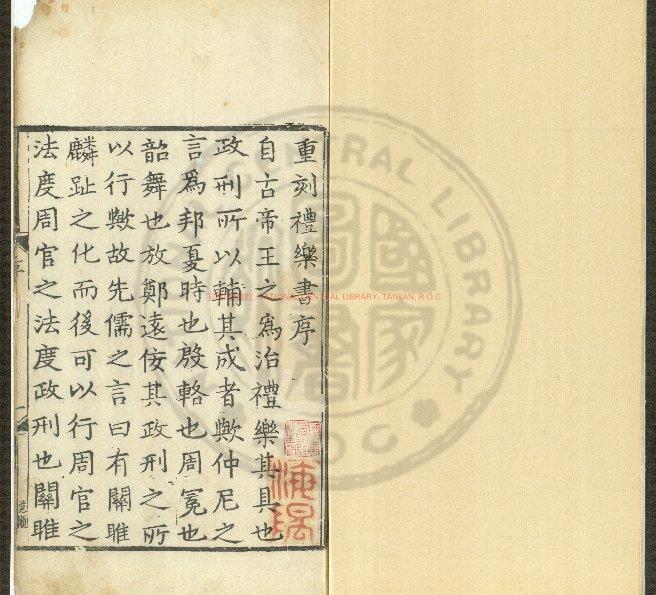 重刻禮樂書序
自古帝王之爲治禮樂其具也
政刑所以輔其成者歟仲尼之
言爲邦夏時也殷輅也周冕也
韶舞也放鄭遠佞其政刑之所
以行歟故先儒之言曰有關雎
麟趾之化而後可以行周官之
法度周官之法度政刑也關雎
序
一
NATIONAL CENTRAL LIBRARY, TAIWAN, R.O.C.